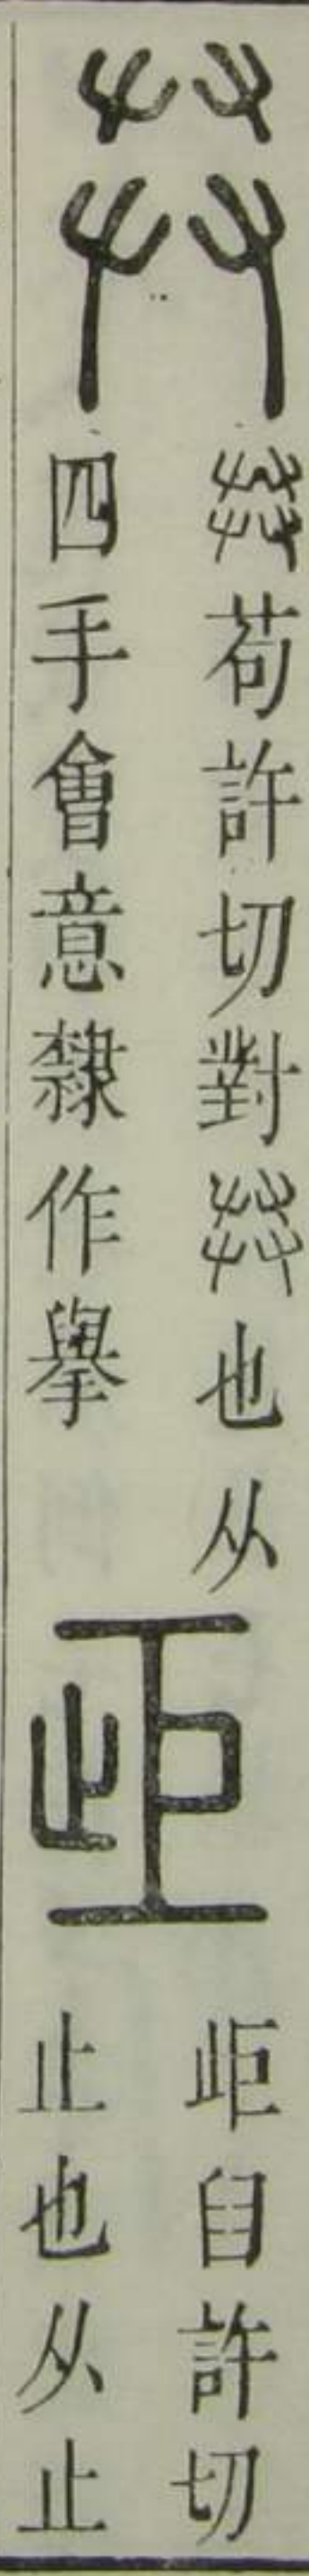 苟許切對也从
四手會意隸作擧
歫
歫臼許切
止也从止